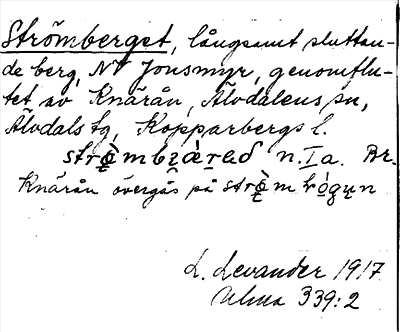 Strömberget, långsamt sluttan-
de berg, NV Jonsmyr, genomflu-
tet av Knärån, Älvdalens sn,
Älvdals tg, Kopparbergs l.
n. Ia. Br.
Knärån övergås på
L. Levander 1917
Ulma 339:2